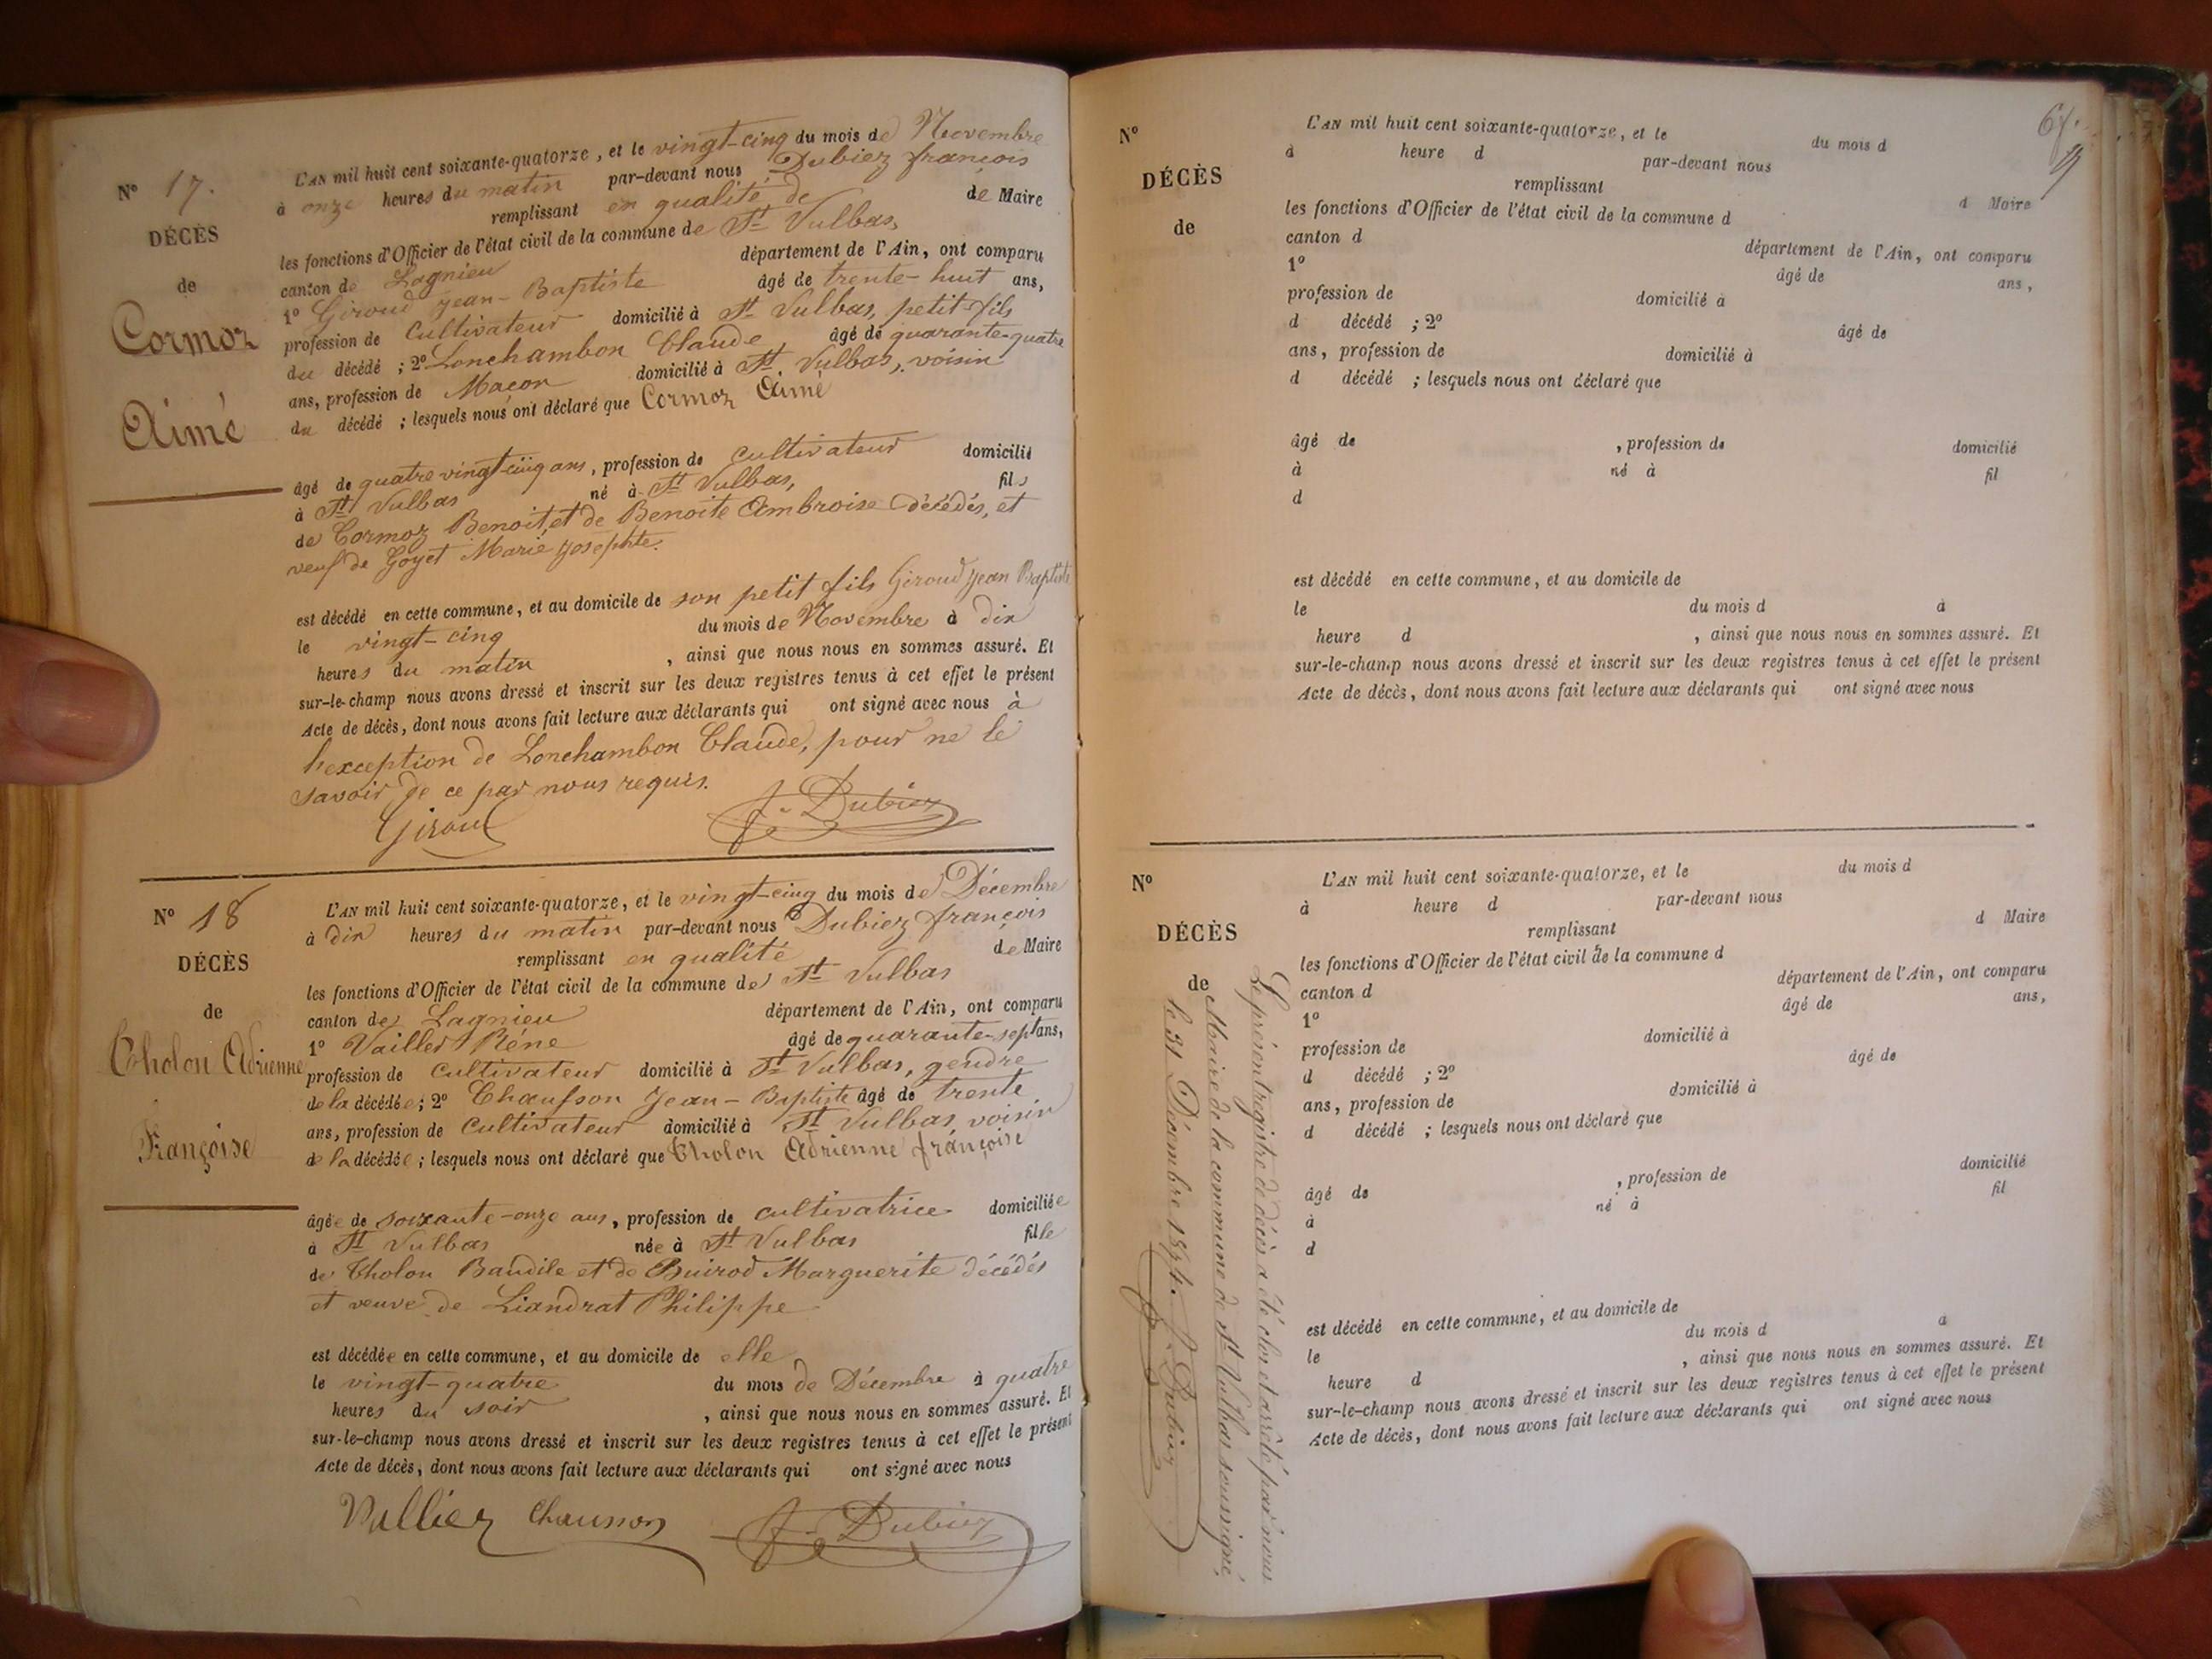 N° 17.
DÉCÈS
de
Cormoz
Aimé
L'AN mil huit cent soixante-quatorze, et le vingt-cinq du mois de Novembre
à onze heures du matin par-devant nous Dubiez françois
remplissant en qualité de de Maire
les fonctions d'Officier de l'état civil de la commune de St Vulbas,
canton de Lagnieu département de l'Ain, ont comparu
1° Giroud Jean-Baptiste âgé de trente-huit ans,
profession de Cultivateur domicilié à St Vulbas, petit-fils
du décédé ; 2° Lonchambon Claude âgé de quarante-quatre
ans, profession de Maçon domicilié à St Vulbas, voisin
du décédé ; lesquels nous ont déclaré que Cormoz Aimé
âgé de quatre vingt cinq ans, profession de cultivateur domicilié
à St Vulbas né à St Vulbas, fils
de Cormoz Benoit, et de Benoite Ambroise décédés, et
veuf de Goyet Marie Josephte.
est décédé en cette commune, et au domicile de son petit fils Giroud Jean Baptiste
le vingt-cinq du mois de Novembre à dix
heures du matin , ainsi que nous nous en sommes assuré. Et
sur-le-champ nous avons dressé et inscrit sur les deux registres tenus à cet effet le présent
Acte de décès, dont nous avons fait lecture aux déclarants qui ont signé avec nous à
l'exception de Lonchambon Claude, pour ne le
savoir de ce par nous requis.
Giroud F. Dubiez
N° 18
DÉCÈS
de
Tholon Adrienne
Françoise
L'AN mil huit cent soixante-quatorze, et le vingt-cinq du mois de Décembre
à dix heures du matin par-devant nous Dubiez françois
remplissant en qualité de Maire
les fonctions d'Officier de l'état civil de la commune de St Vulbas
canton de Lagnieu département de l'Ain, ont comparu
1° Vallier Réne âgé de quarante-sept ans,
profession de cultivateur domicilié à St Vulbas, gendre
de la décédée ; 2° Chausson Jean-Baptiste âgé de trente
ans, profession de Cultivateur domicilié à St Vulbas, voisin
de la décédée ; lesquels nous ont déclaré que Tholon Adrienne françoise
âgée de soixante-onze ans, profession de cultivatrice domiciliée
à St Vulbas née à St Vulbas fille
de Tholon Baudile et de Buirod Marguerite décédés
et veuve de Liandrat Philippe
est décédée en cette commune, et au domicile de elle
le vingt-quatre du mois de Décembre à quatre
heures du soir , ainsi que nous nous en sommes assuré. Et
sur-le-champ nous avons dressé et inscrit sur les deux registres tenus à cet effet le présent
Acte de décès, dont nous avons fait lecture aux déclarants qui ont signé avec nous
Vallier Chausson F. Dubiez
N°
DÉCÈS
de
L'AN mil huit cent soixante-quatorze, et le du mois d
à heure d par-devant nous
remplissant d Maire
les fonctions d'Officier de l'état civil de la commune d
canton d département de l'Ain, ont comparu
1° âgé de ans,
profession de domicilié à
d décédé ; 2° âgé de
ans, profession de domicilié à
d décédé ; lesquels nous ont déclaré que
âgé de , profession de domicilié
à né à fil
d
est décédé en cette commune, et au domicile de
le du mois d à
heure d , ainsi que nous nous en sommes assuré. Et
sur-le-champ nous avons dressé et inscrit sur les deux registres tenus à cet effet le présent
Acte de décès, dont nous avons fait lecture aux déclarants qui ont signé avec nous
N°
DÉCÈS
de
L'AN mil huit cent soixante-quatorze, et le du mois d
à heure d par-devant nous
remplissant d Maire
les fonctions d'Officier de l'état civil de la commune d
canton d département de l'Ain, ont comparu
1° âgé de ans,
profession de domicilié à
d décédé ; 2° âgé de
ans, profession de domicilié à
d décédé ; lesquels nous ont déclaré que
âgé de , profession de domicilié
à né à fil
d
est décédé en cette commune, et au domicile de
le du mois d à
heure d , ainsi que nous nous en sommes assuré. Et
sur-le-champ nous avons dressé et inscrit sur les deux registres tenus à cet effet le présent
Acte de décès, dont nous avons fait lecture aux déclarants qui ont signé avec nous
Le présent registre de décès a été clos et arrêté par nous
Maire de la commune de St Vulbas soussigné,
le 31 Décembre 1874.
F. Dubiez